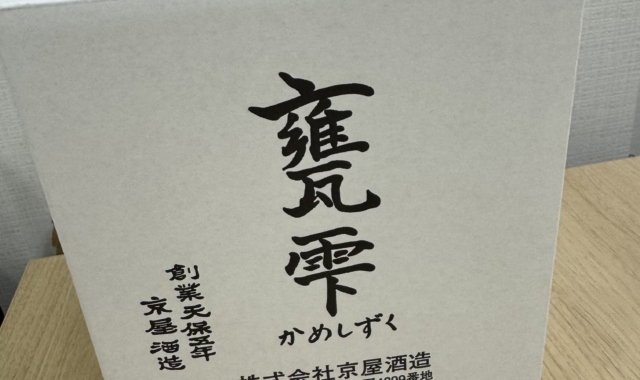 甕雫
かめしずく
創業天保五年
京屋酒造
株式会社京屋酒造